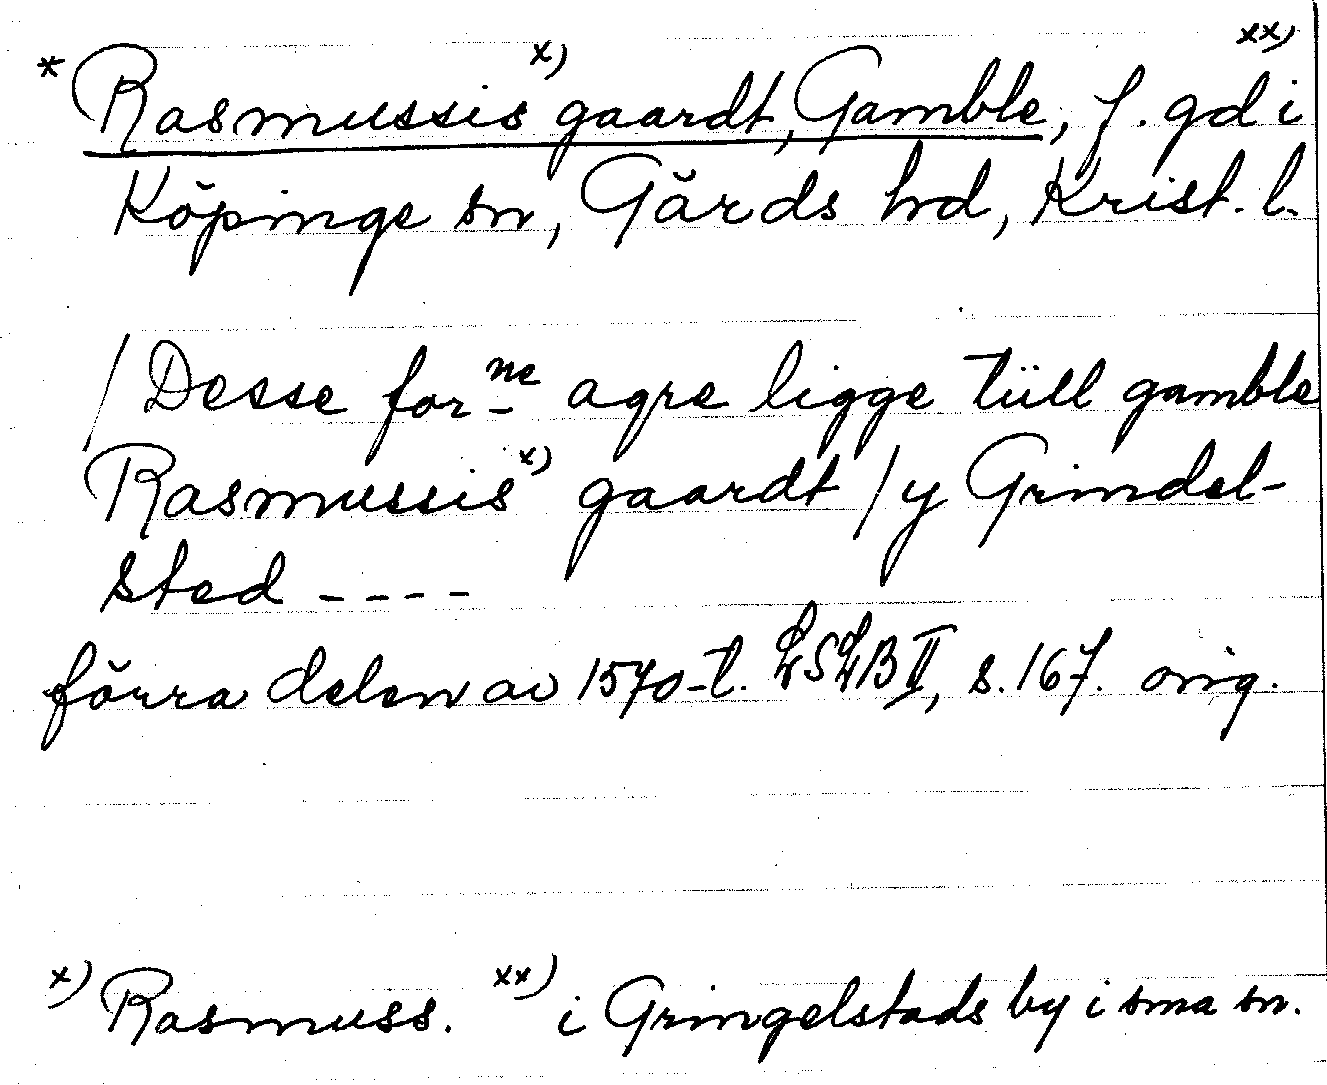 * Rasmussis x) gaardt, Gamble, f. gd i xx)
Köpinge sn, Gärds hd, Krist. l.
/ Desse for ne agre ligge tüll gamble
Rasmussis x) gaardt / y Grindel-
sted ----
förra delen av 1570-t. LSLB II, s. 167. orig.
x) Rasmuss. xx) i Gringelstads by i sma sn.